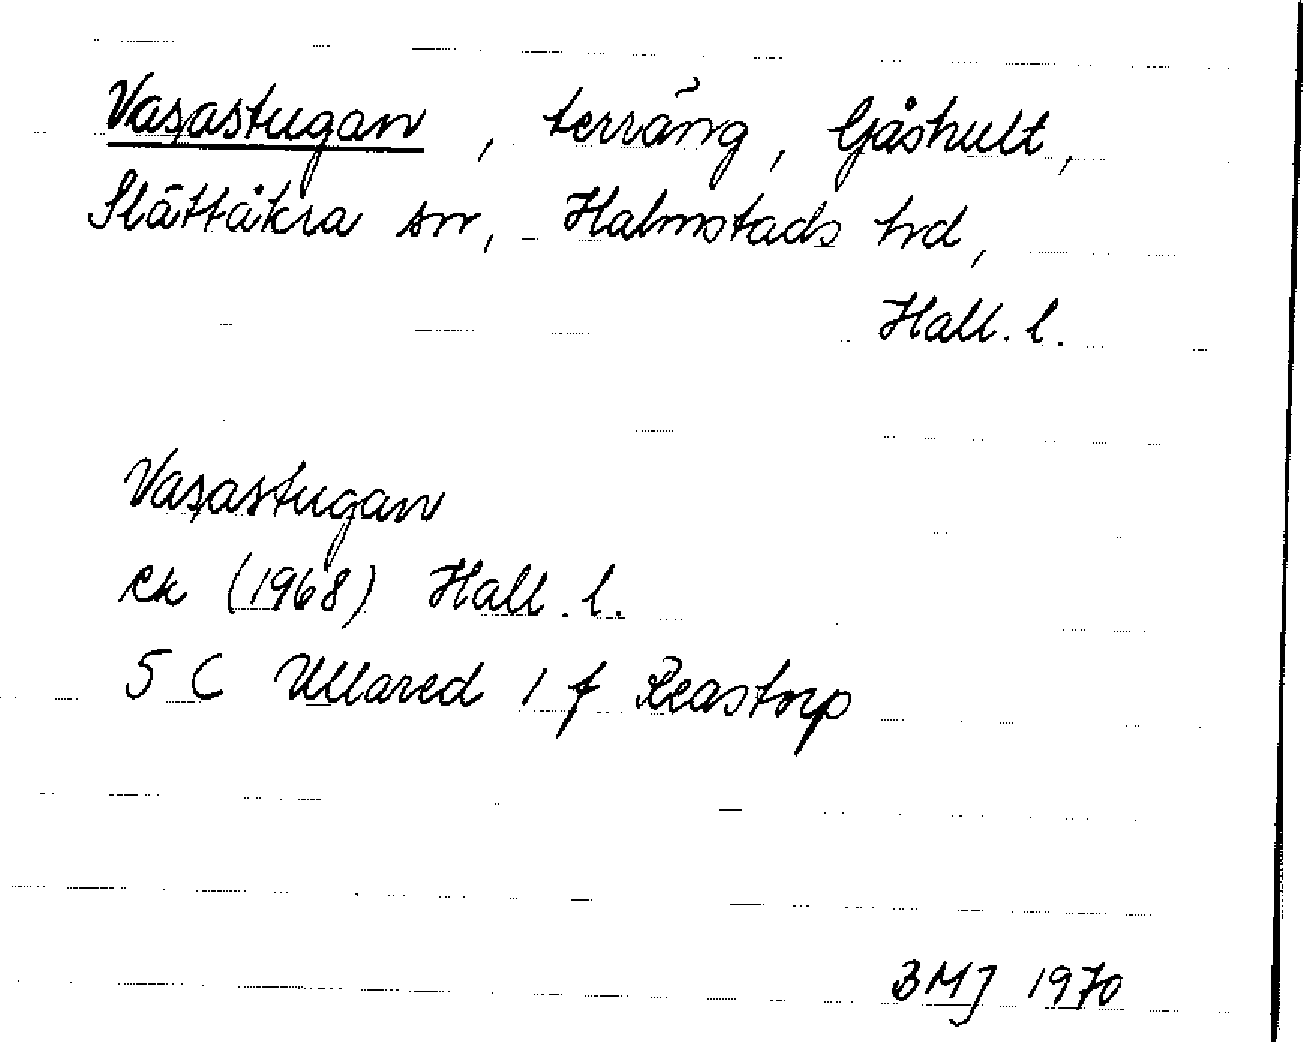 Vasastugan, terräng, Gåshult,
Slättåkra sn, Halmstads hd,
Hall. l.
Vasastugan
ek (1968) Hall. l.
5 C Ullared 1 f Reastorp
BMJ 1970